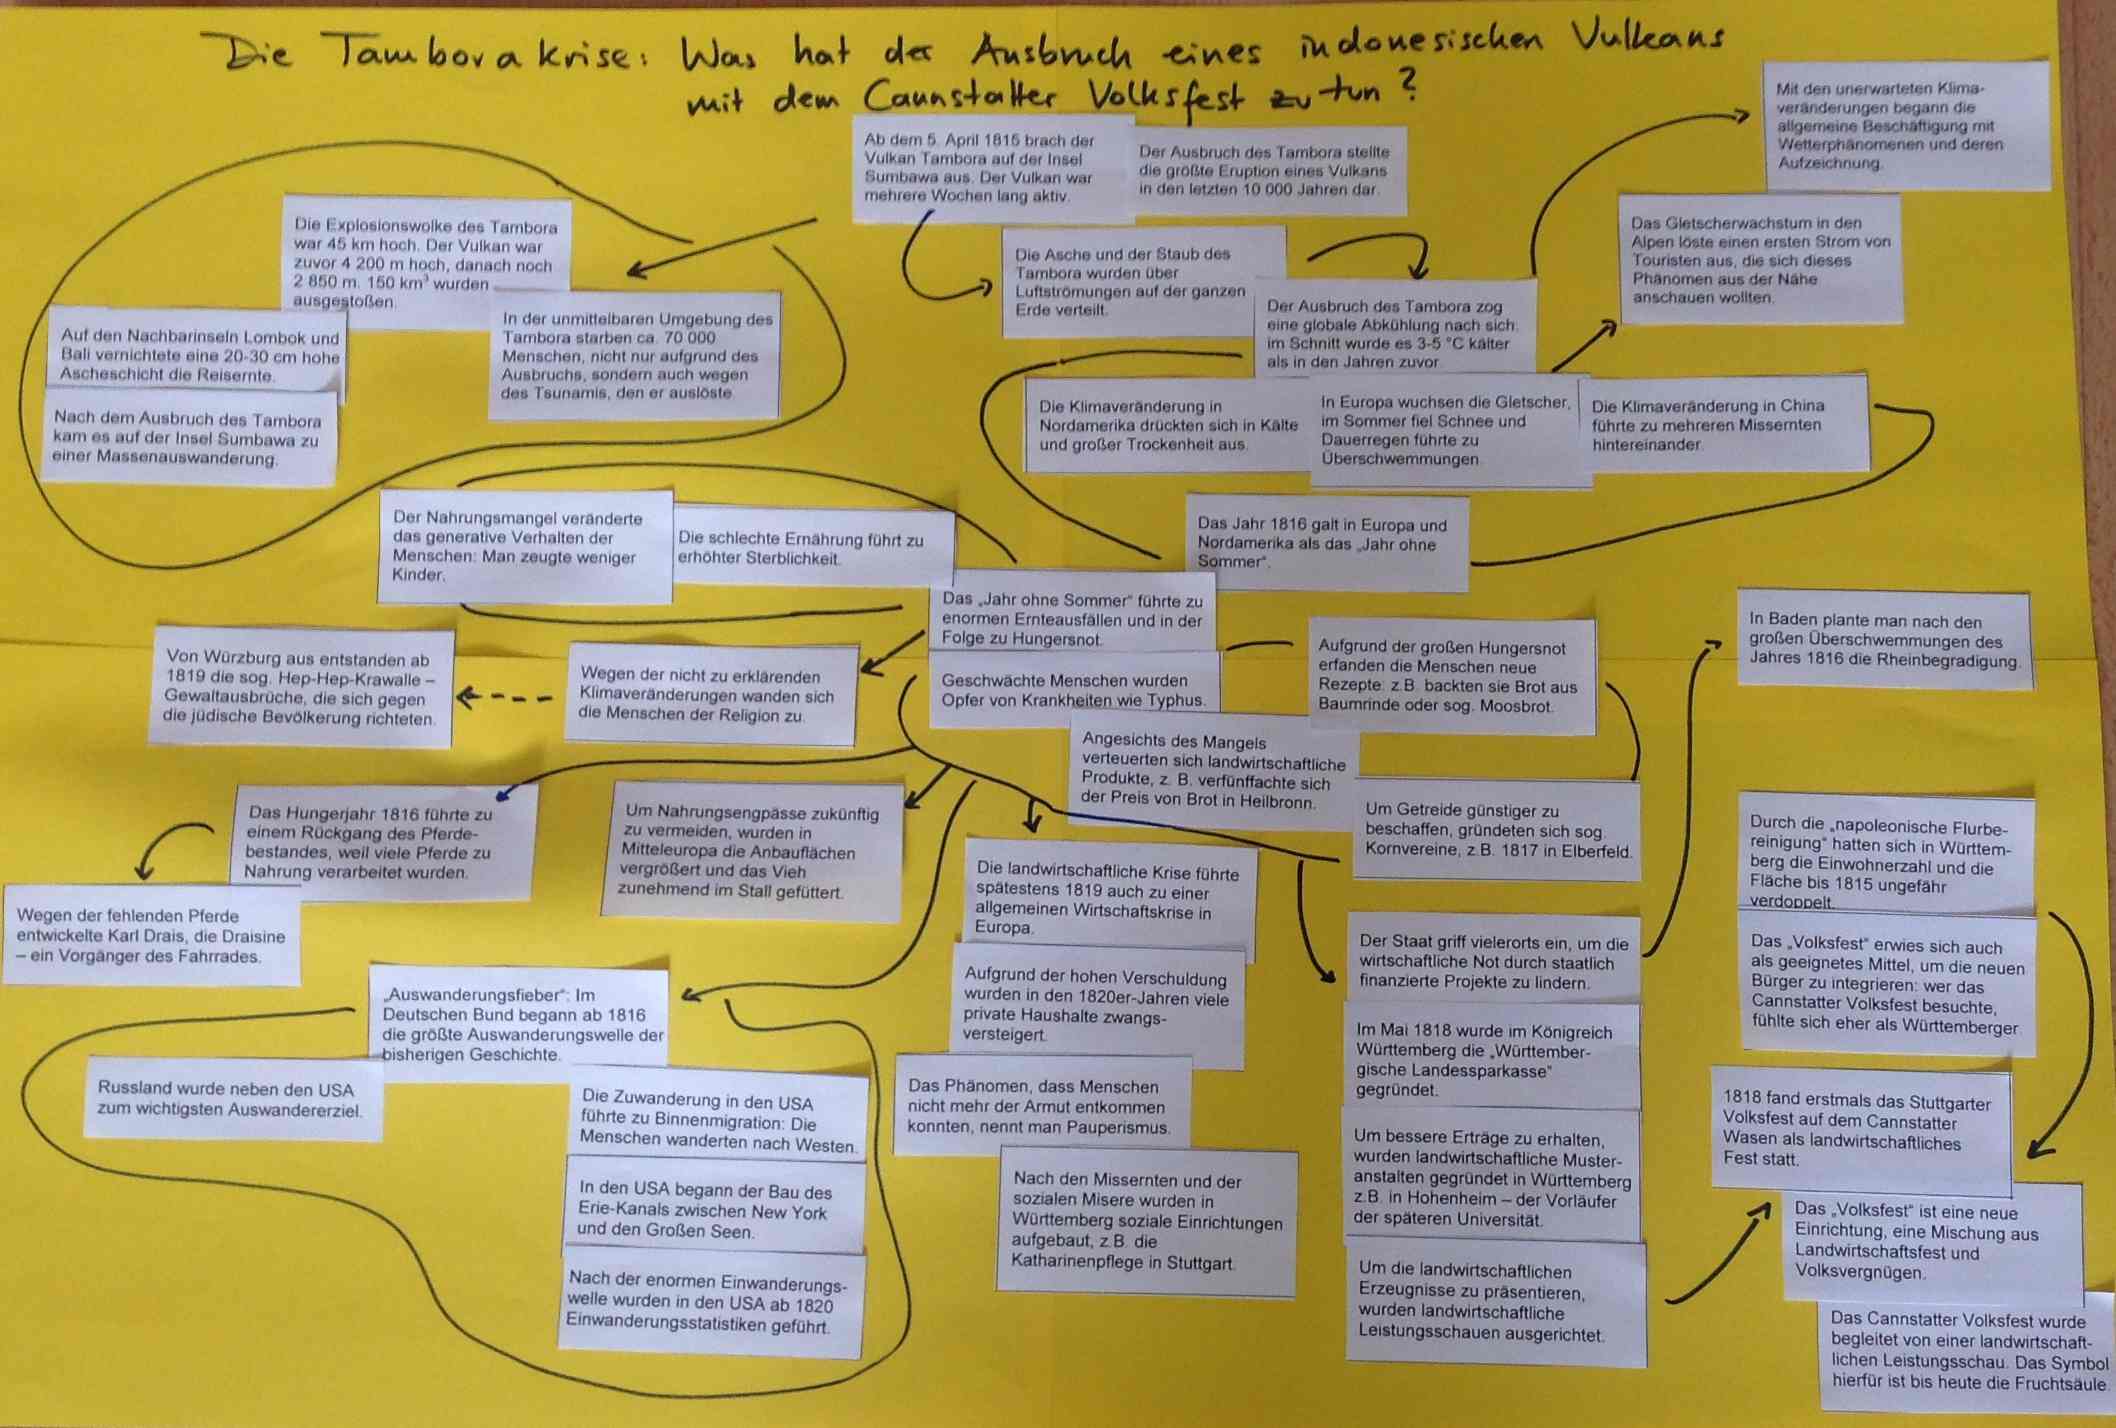 Die Tamborakrise: Was hat der Ausbruch eines indonesischen Vulkans
mit dem Cannstatter Volksfest zu tun?
Ab dem 5. April 1815 brach der
Vulkan Tambora auf der Insel
Sumbawa aus. Der Vulkan war
mehrere Wochen lang aktiv.
Der Ausbruch des Tambora stellte
die größte Eruption eines Vulkans
in den letzten 10 000 Jahren dar.
Mit den unerwarteten Klima-
veränderungen begann die
allgemeine Beschäftigung mit
Wetterphänomenen und deren
Aufzeichnung.
Die Explosionswolke des Tambora
war 45 km hoch. Der Vulkan war
zuvor 4 200 m hoch, danach noch
2 850 m. 150 km³ wurden
ausgestoßen.
Das Gletscherwachstum in den
Alpen löste einen ersten Strom von
Touristen aus, die sich dieses
Phänomen aus der Nähe
anschauen wollten.
Die Asche und der Staub des
Tambora wurden über
Luftströmungen auf der ganzen
Erde verteilt.
Der Ausbruch des Tambora zog
eine globale Abkühlung nach sich:
im Schnitt wurde es 3-5 °C kälter
als in den Jahren zuvor.
Auf den Nachbarinseln Lombok und
Bali vernichtete eine 20-30 cm hohe
Ascheschicht die Reisernte.
In der unmittelbaren Umgebung des
Tambora starben ca. 70 000
Menschen, nicht nur aufgrund des
Ausbruchs, sondern auch wegen
des Tsunamis, den er auslöste.
Nach dem Ausbruch des Tambora
kam es auf der Insel Sumbawa zu
einer Massenauswanderung.
Die Klimaveränderung in
Nordamerika drückten sich in Kälte
und großer Trockenheit aus.
In Europa wuchsen die Gletscher,
im Sommer fiel Schnee und
Dauerregen führte zu
Überschwemmungen.
Die Klimaveränderung in China
führte zu mehreren Missernten
hintereinander.
Der Nahrungsmangel veränderte
das generative Verhalten der
Menschen: Man zeugte weniger
Kinder.
Die schlechte Ernährung führt zu
erhöhter Sterblichkeit.
Das Jahr 1816 galt in Europa und
Nordamerika als das „Jahr ohne
Sommer“.
Das „Jahr ohne Sommer“ führte zu
enormen Ernteausfällen und in der
Folge zu Hungersnot.
Geschwächte Menschen wurden
Opfer von Krankheiten wie Typhus.
Aufgrund der großen Hungersnot
erfanden die Menschen neue
Rezepte: z.B. backten sie Brot aus
Baumrinde oder sog. Moosbrot.
In Baden plante man nach den
großen Überschwemmungen des
Jahres 1816 die Rheinbegradigung.
Von Würzburg aus entstanden ab
1819 die sog. Hep-Hep-Krawalle –
Gewaltausbrüche, die sich gegen
die jüdische Bevölkerung richteten.
Wegen der nicht zu erklärenden
Klimaveränderungen wanden sich
die Menschen der Religion zu.
Angesichts des Mangels
verteuerten sich landwirtschaftliche
Produkte, z. B. verfünffachte sich
der Preis von Brot in Heilbronn.
Um Getreide günstiger zu
beschaffen, gründeten sich sog.
Kornvereine, z.B. 1817 in Elberfeld.
Das Hungerjahr 1816 führte zu
einem Rückgang des Pferde-
bestandes, weil viele Pferde zu
Nahrung verarbeitet wurden.
Um Nahrungsengpässe zukünftig
zu vermeiden, wurden in
Mitteleuropa die Anbauflächen
vergrößert und das Vieh
zunehmend im Stall gefüttert.
Wegen der fehlenden Pferde
entwickelte Karl Drais, die Draisine
– ein Vorgänger des Fahrrades.
Die landwirtschaftliche Krise führte
spätestens 1819 auch zu einer
allgemeinen Wirtschaftskrise in
Europa.
Aufgrund der hohen Verschuldung
wurden in den 1820er-Jahren viele
private Haushalte zwangs-
versteigert.
Das Phänomen, dass Menschen
nicht mehr der Armut entkommen
konnten, nennt man Pauperismus.
Nach den Missernten und der
sozialen Misere wurden in
Württemberg soziale Einrichtungen
aufgebaut, z.B. die
Katharinenpflege in Stuttgart.
„Auswanderungsfieber“: Im
Deutschen Bund begann ab 1816
die größte Auswanderungswelle der
bisherigen Geschichte.
Russland wurde neben den USA
zum wichtigsten Auswandererziel.
Die Zuwanderung in den USA
führte zu Binnenmigration: Die
Menschen wanderten nach Westen.
In den USA begann der Bau des
Erie-Kanals zwischen New York
und den Großen Seen.
Nach der enormen Einwanderungs-
welle wurden in den USA ab 1820
Einwanderungsstatistiken geführt.
Der Staat griff vielerorts ein, um die
wirtschaftliche Not durch staatlich
finanzierte Projekte zu lindern.
Im Mai 1818 wurde im Königreich
Württemberg die „Württember-
gische Landessparkasse“
gegründet.
Um bessere Erträge zu erhalten,
wurden landwirtschaftliche Muster-
anstalten gegründet in Württemberg
z.B. in Hohenheim – der Vorläufer
der späteren Universität.
Um die landwirtschaftlichen
Erzeugnisse zu präsentieren,
wurden landwirtschaftliche
Leistungsschauen ausgerichtet.
Durch die „napoleonische Flurbe-
reinigung“ hatten sich in Württem-
berg die Einwohnerzahl und die
Fläche bis 1815 ungefähr
verdoppelt.
Das „Volksfest“ erwies sich auch
als geeignetes Mittel, um die neuen
Bürger zu integrieren: wer das
Cannstatter Volksfest besuchte,
fühlte sich eher als Württemberger.
1818 fand erstmals das Stuttgarter
Volksfest auf dem Cannstatter
Wasen als landwirtschaftliches
Fest statt.
Das „Volksfest“ ist eine neue
Einrichtung, eine Mischung aus
Landwirtschaftsfest und
Volksvergnügen.
Das Cannstatter Volksfest wurde
begleitet von einer landwirtschaft-
lichen Leistungsschau. Das Symbol
hierfür ist bis heute die Fruchtsäule.